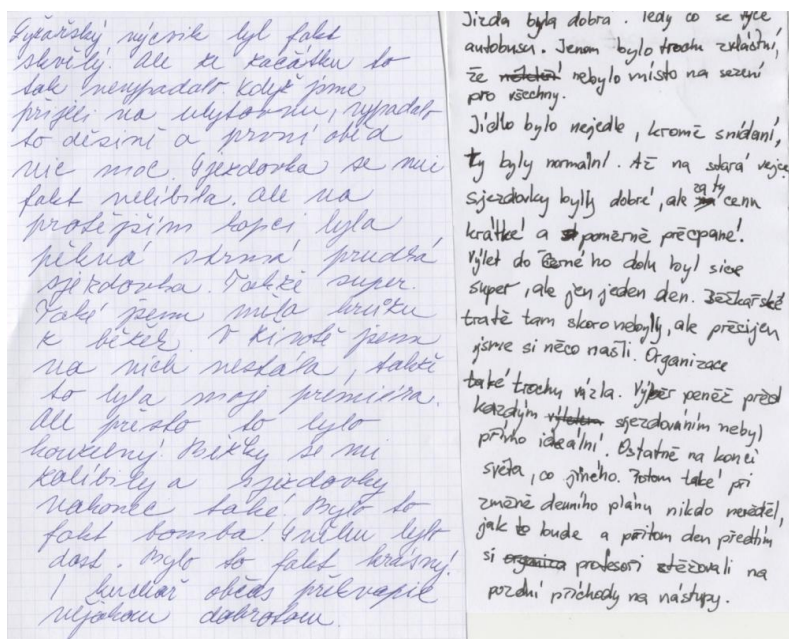 Lyžařský výcvik byl fakt
skvělý. Ale ze začátku to
tak nevypadalo. Když jsme
přijeli na ubytovnu, vypadalo
to děsině a první oběd
nic moc. Sjezdovka se mi
fakt nelíbila. Ale na
protějším kopci byla
pěkná strmá prudká
sjezdovka. Takže super.
Také jsem měla hrůzu
z běžek. V životě jsem
na nich nestála, takže
to byla moje premiéra.
Ale přesto to bylo
kouzelný. Běžky se mi
zalíbily a sjezdovky
nakonec také. Bylo to
fakt bomba! Sněhu bylo
dost. Bylo to fakt krásný.
I kuchař občas překvapil
nějakou dobrotou.
Jizda byla dobra. Tedy co se týče
autobusu. Jenom bylo trochu zvláštní,
že nebylo místo na sezení
pro všechny.
Jídlo bylo nejedlé, kromě snídaní,
ty byly normální. Až na stará vejce.
Sjezdovky byly dobré, ale za tu cenu
krátké a poměrně přecpané.
Výlet do Černého dolu byl sice
super, ale jen jeden den. Běžkařské
tratě tam skoro nebyly, ale přecijen
jsme si něco našli. Organizace
také trochu vázla. Výběr peněz před
každým sjezdováním nebyl
přímo ideální. Ostatně na konci
světa, co jiného. Potom také při
změně denního plánu nikdo nevěděl,
jak to bude a přitom den předtím
si profesoři stěžovali na
pozdní příchody na nástupy.